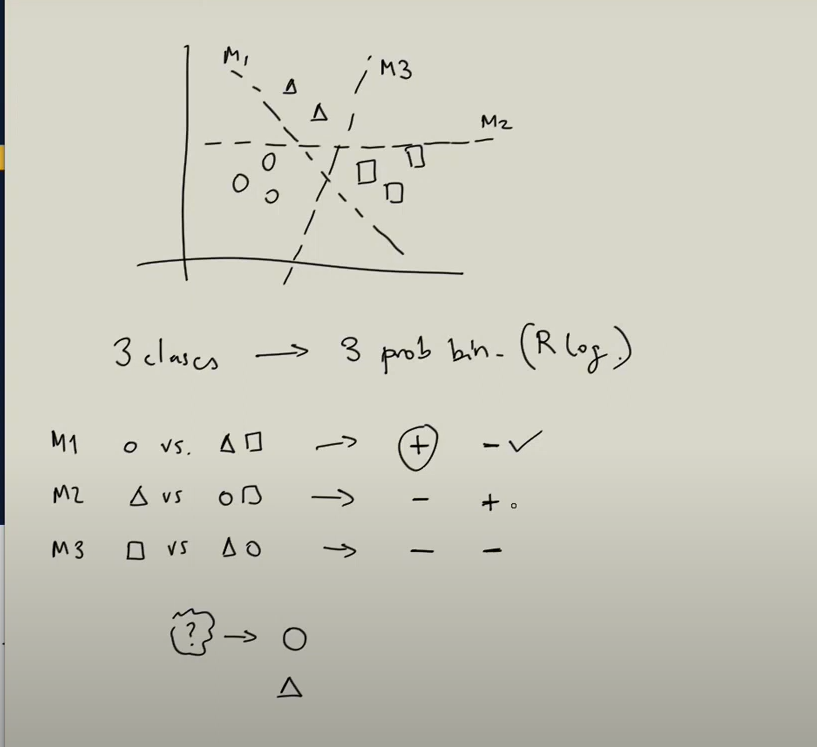 M1
M3
M2
3 clases → 3 prob bin. (R log.)
M1 ○ vs. △ □ → + - ✓
M2 △ vs ○ □ → - +
M3 □ vs △ ○ → - -
? → ○
△